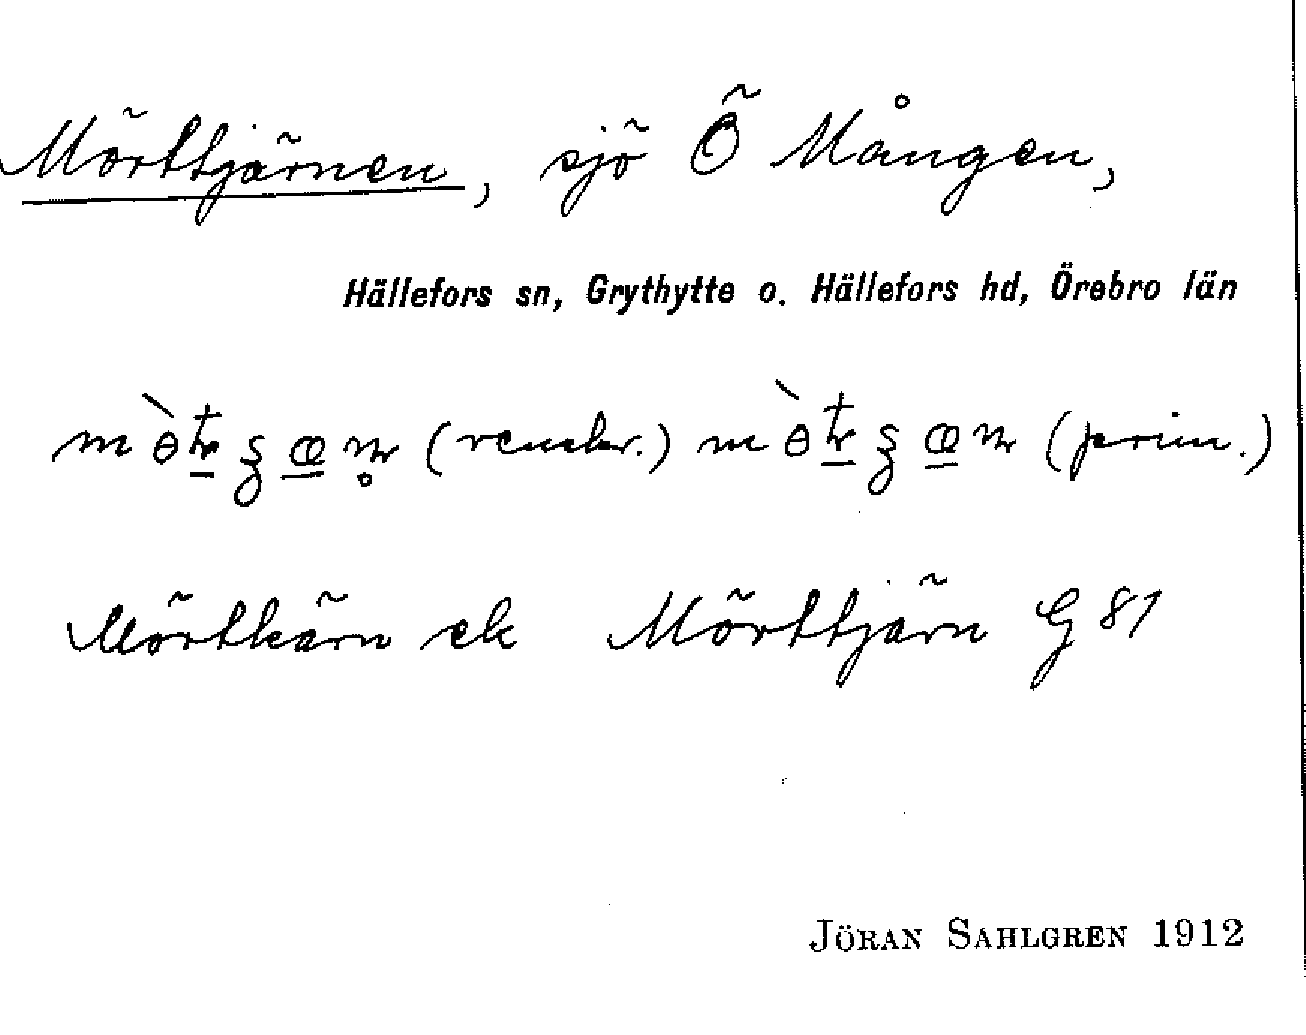 Mörttjärnen, sjö Ö Mången,
Hällefors sn, Grythytte o. Hällefors hd, Örebro län
(prim.)
Mörtkärn ek Mörttjärn G 81
JÖRAN SAHLGREN 1912